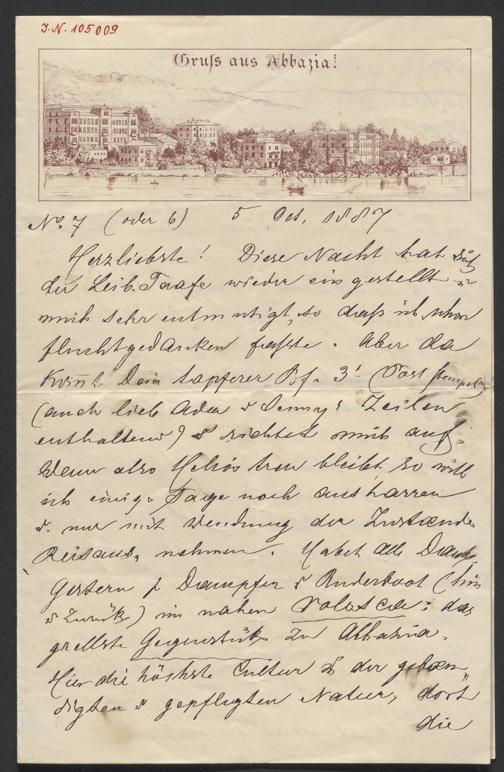 I.N. 105009
Gruss aus Abbazia!
No. 7 (oder 6) 5 Oct. 1887
Herzliebste! Diese Nacht hat sich
der Leib. Taafe wieder eingestellt u
mich sehr entmutigt, so daß ich schon
fluchtgedanken faßte. Aber da
kom̄t Dein tapferer Bf. 3! (Post
(auch lieb Ada u Jenny's Zeilen
enthaltend) u richtet mich auf.
Wenn also Helios treu bleibt, so will
ich einige Tage noch ausharren
u. nur mit Wendung der Zustände
Reisaus nehmen. Habet alle Dank
Gestern p Dampfer u Ruderboot (hin
u zurück) im nahen Volosca: das
grellste Gegenstück zu Abbazia.
Hier die höchste Cultur u der gebän
digten u gepflegten Natur, dort
die